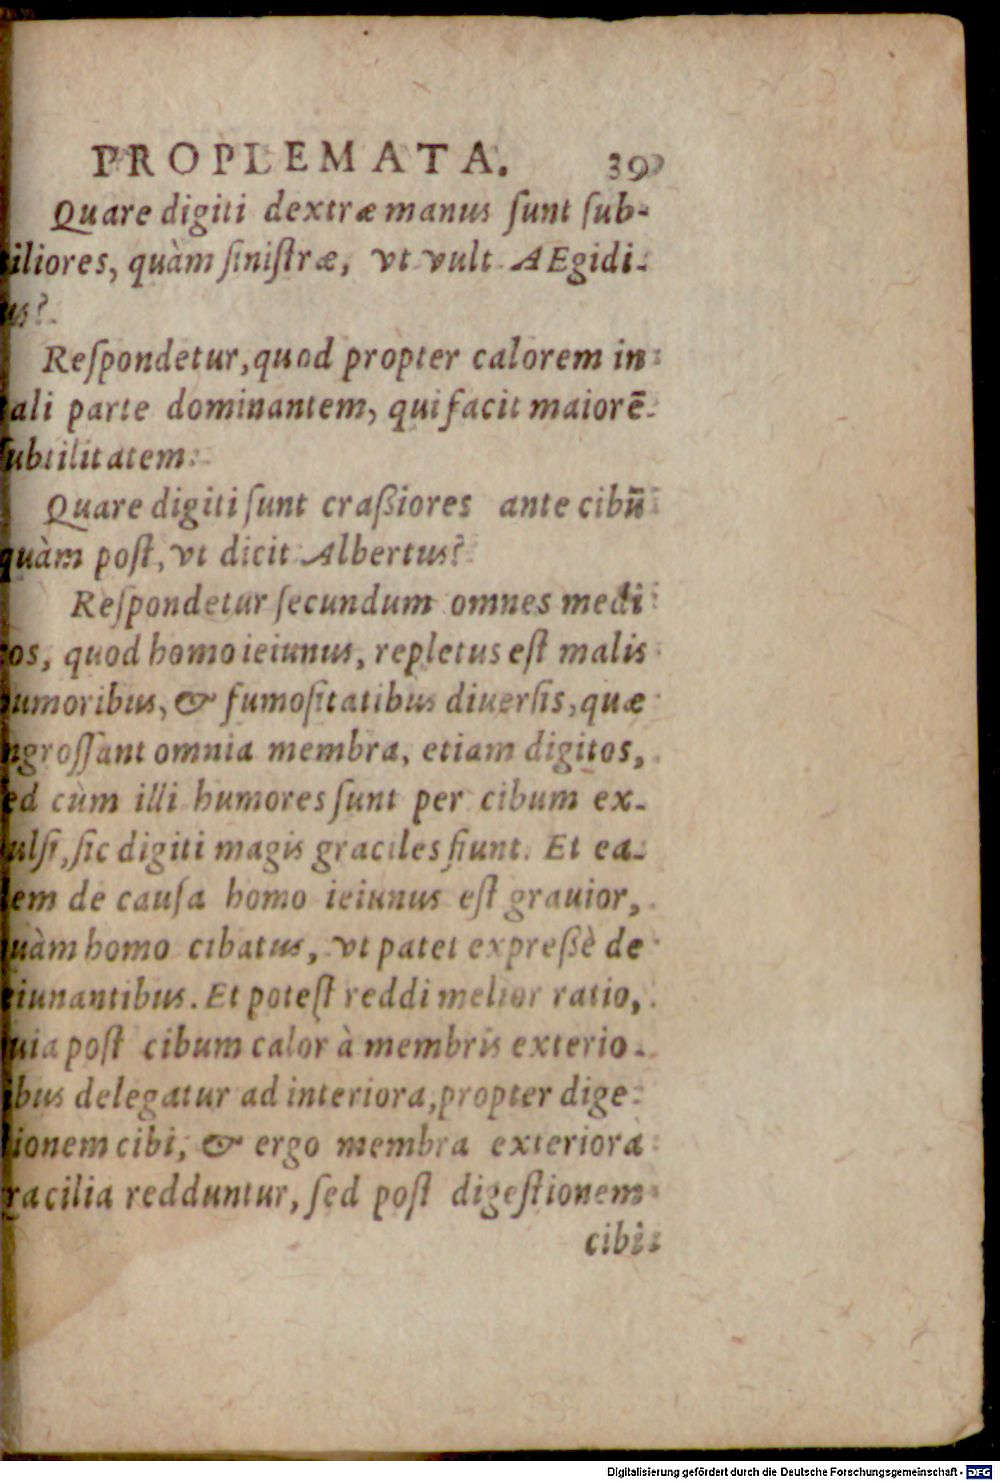 PROPLEMATA. 39
Quare digiti dextræ manus ſunt ſub-
tiliores, quàm ſiniſtræ, vt vult AEgidi-
us?
Reſpondetur, quod propter calorem in
tali parte dominantem, qui facit maiorē
ſubtilitatem.
Quare digiti ſunt craßiores ante cibū
quàm poſt, vt dicit Albertus?
Reſpondetur ſecundum omnes medi
cos, quod homo ieiunus, repletus eſt malis
humoribus, & fumoſitatibus diuerſis, quæ
ngroſſant omnia membra, etiam digitos,
ſed cùm illi humores ſunt per cibum ex-
ulſi, ſic digiti magis graciles fiunt. Et ea-
dem de cauſa homo ieiunus eſt grauior,
quàm homo cibatus, vt patet expreßè de
eiunantibus. Et poteſt reddi melior ratio,
quia poſt cibum calor à membris exterio-
ibus delegatur ad interiora, propter dige
ſtionem cibi, & ergo membra exteriora
racilia redduntur, ſed poſt digeſtionem
cibi
Digitalisierung gefördert durch die Deutsche Forschungsgemeinschaft - DFG